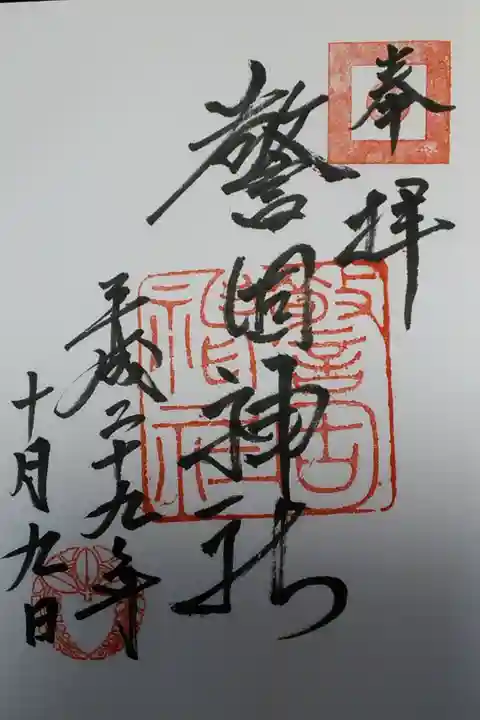 奉拝
警固神社
平成二十九年
十月九日